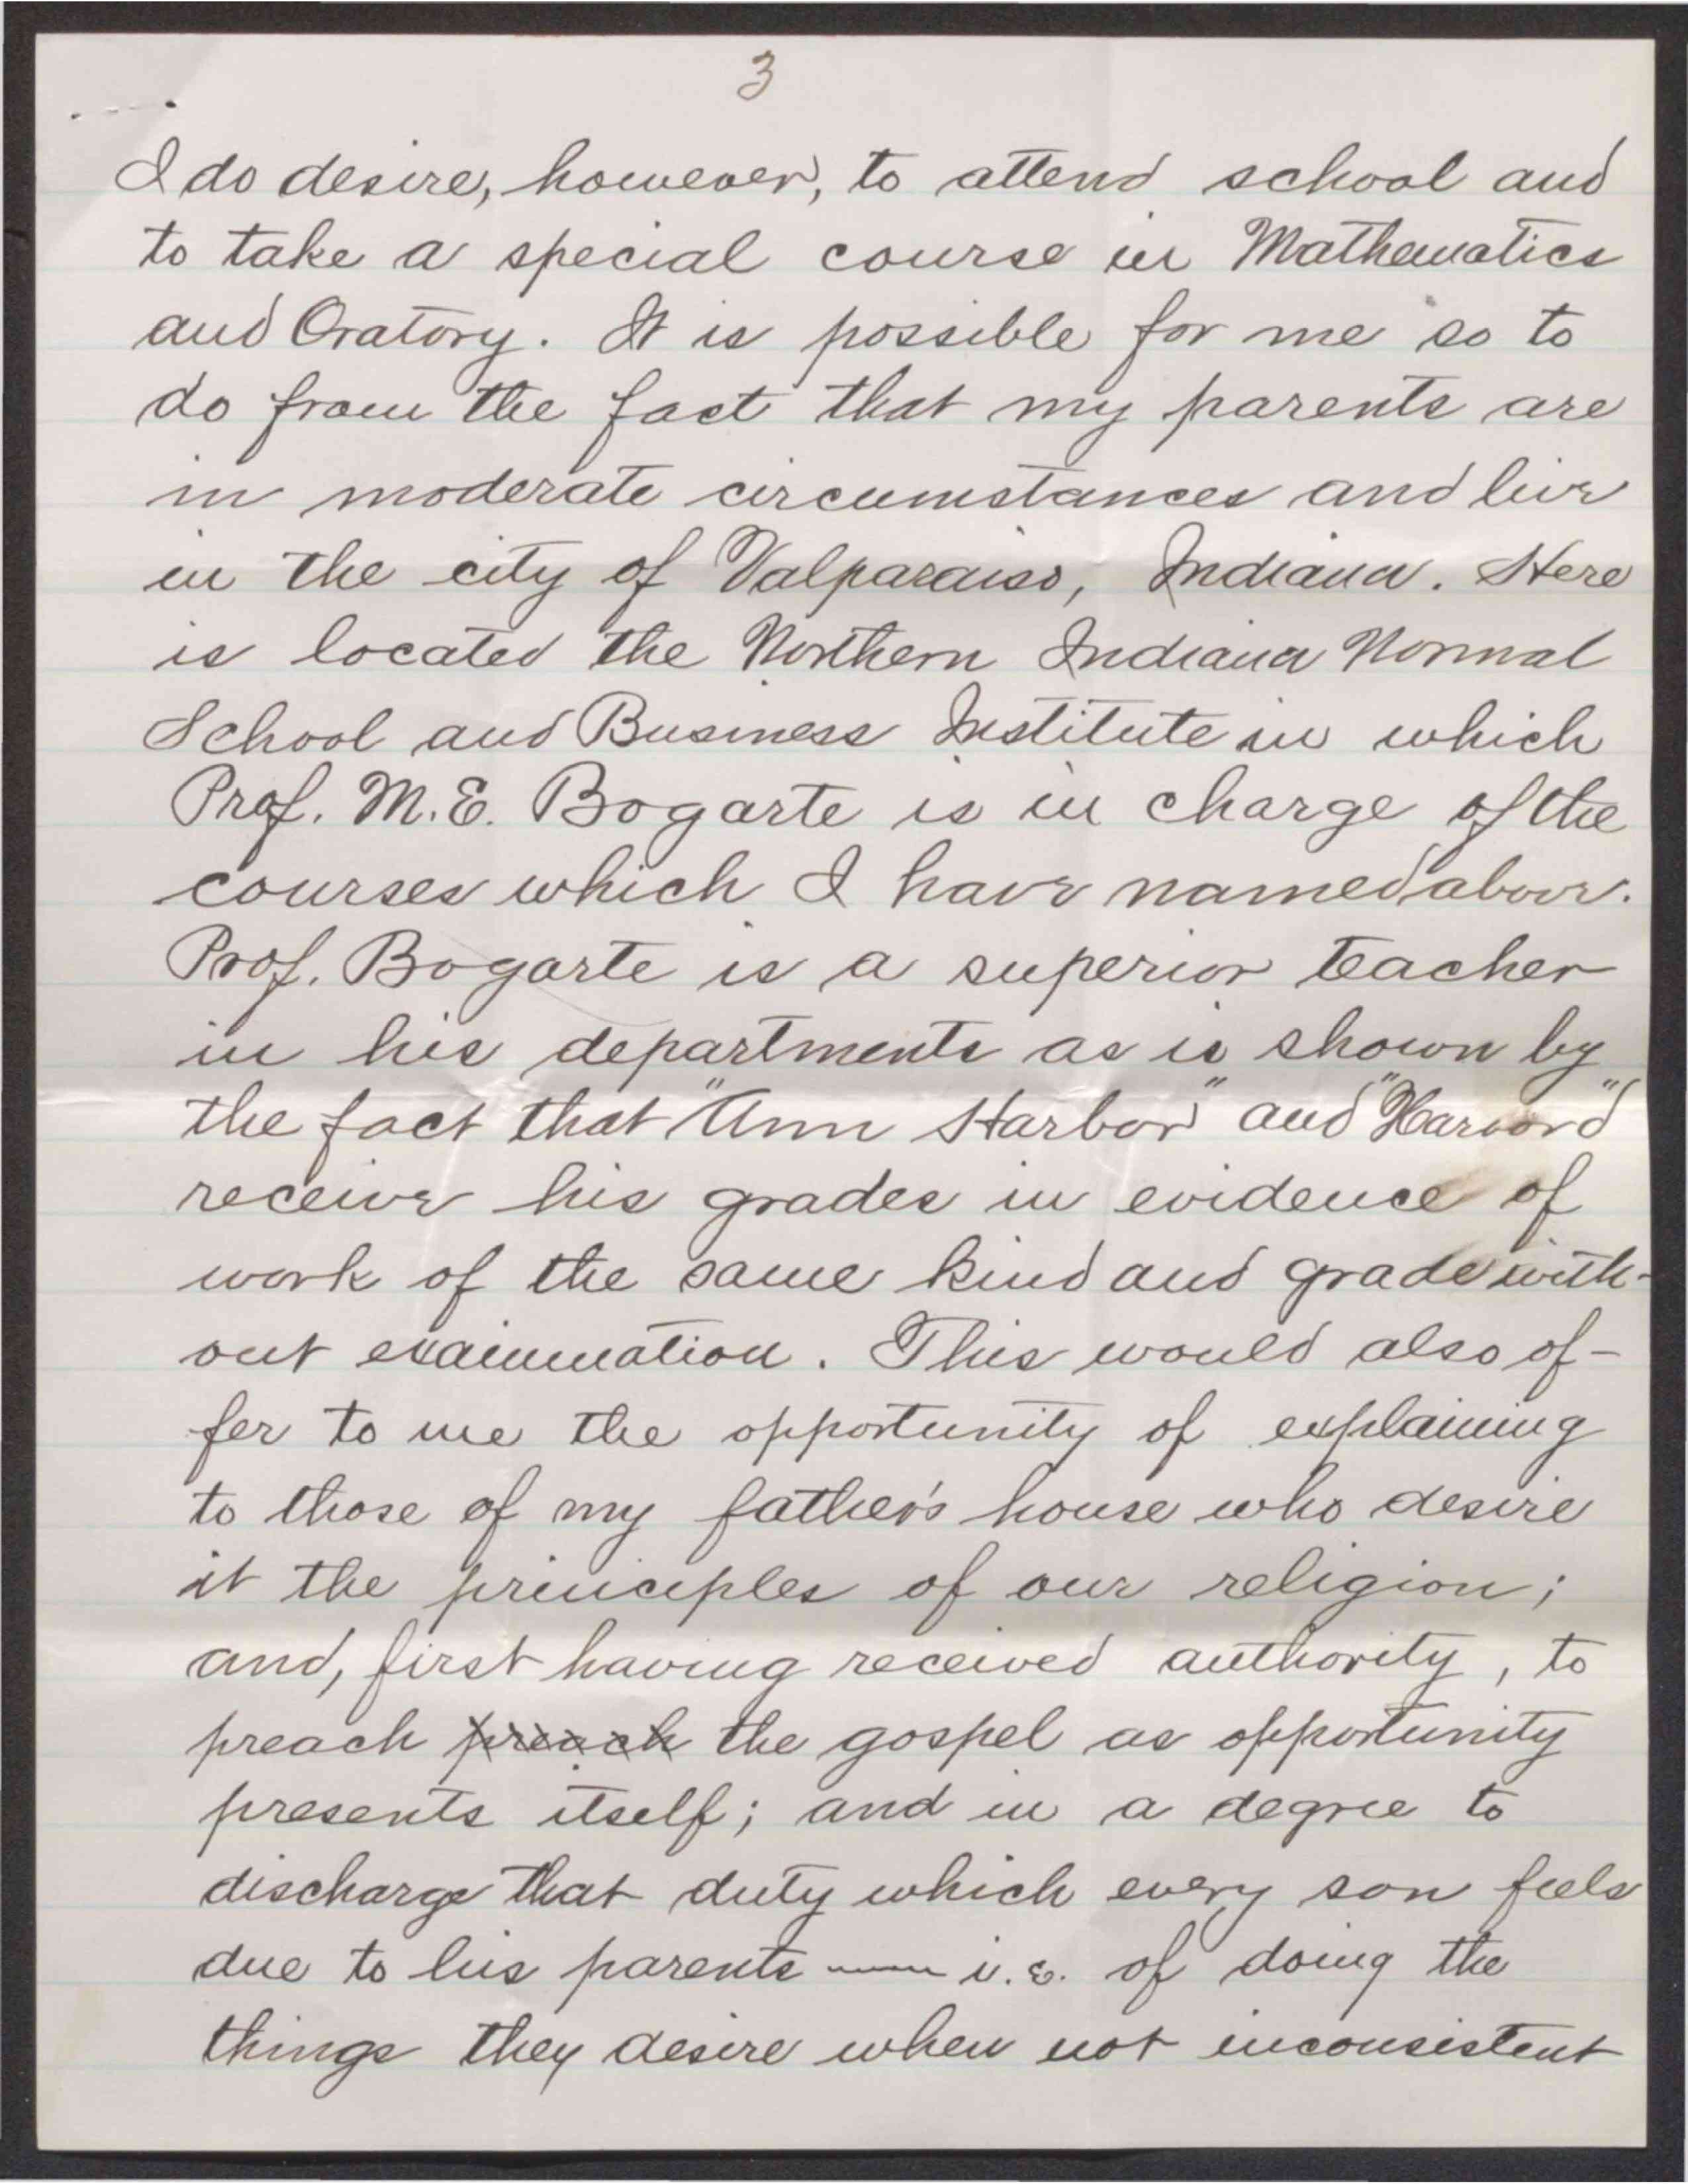 3
I do desire, however, to attend school and
to take a special course in Mathematics
and Oratory. It is possible for me so to
do from the fact that my parents are
in moderate circumstances and live
in the city of Valparaiso, Indiana. Here
is located the Northern Indiana Normal
School and Business Institute in which
Prof. M.E. Bogarte is in charge of the
courses which I have named above.
Prof. Bogarte is a superior teacher
in his departments as is shown by
the fact that "Ann Harbor" and "Harvard"
receive his grades in evidence of
work of the same kind and grade with-
out examination. This would also of-
fer to me the opportunity of explaining
to those of my father's house who desire
it the principles of our religion;
and, first having received authority, to
preach preach the gospel as opportunity
presents itself; and in a degree to
discharge that duty which every son feels
due to his parents — i.e. of doing the
things they desire when not inconsistent